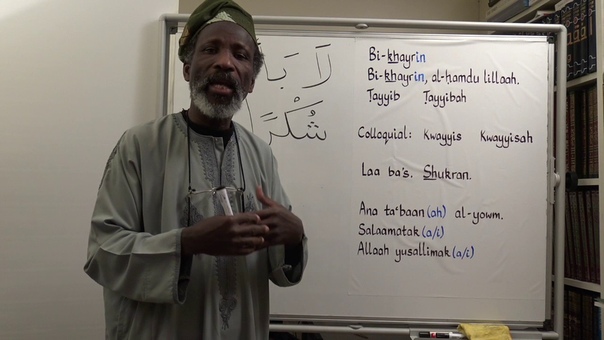 لَا بَا
شُكْرًا
Bi-khayrin
Bi-khayrin, al-ḥamdu lillaah.
Ṭayyib Ṭayyibah
Colloquial: Kwayyis Kwayyisah
Laa ba's. Shukran.
Ana taʿbaan(ah) al-yowm.
Salaamatak(a/i)
Allaah yusallimak(a/i)